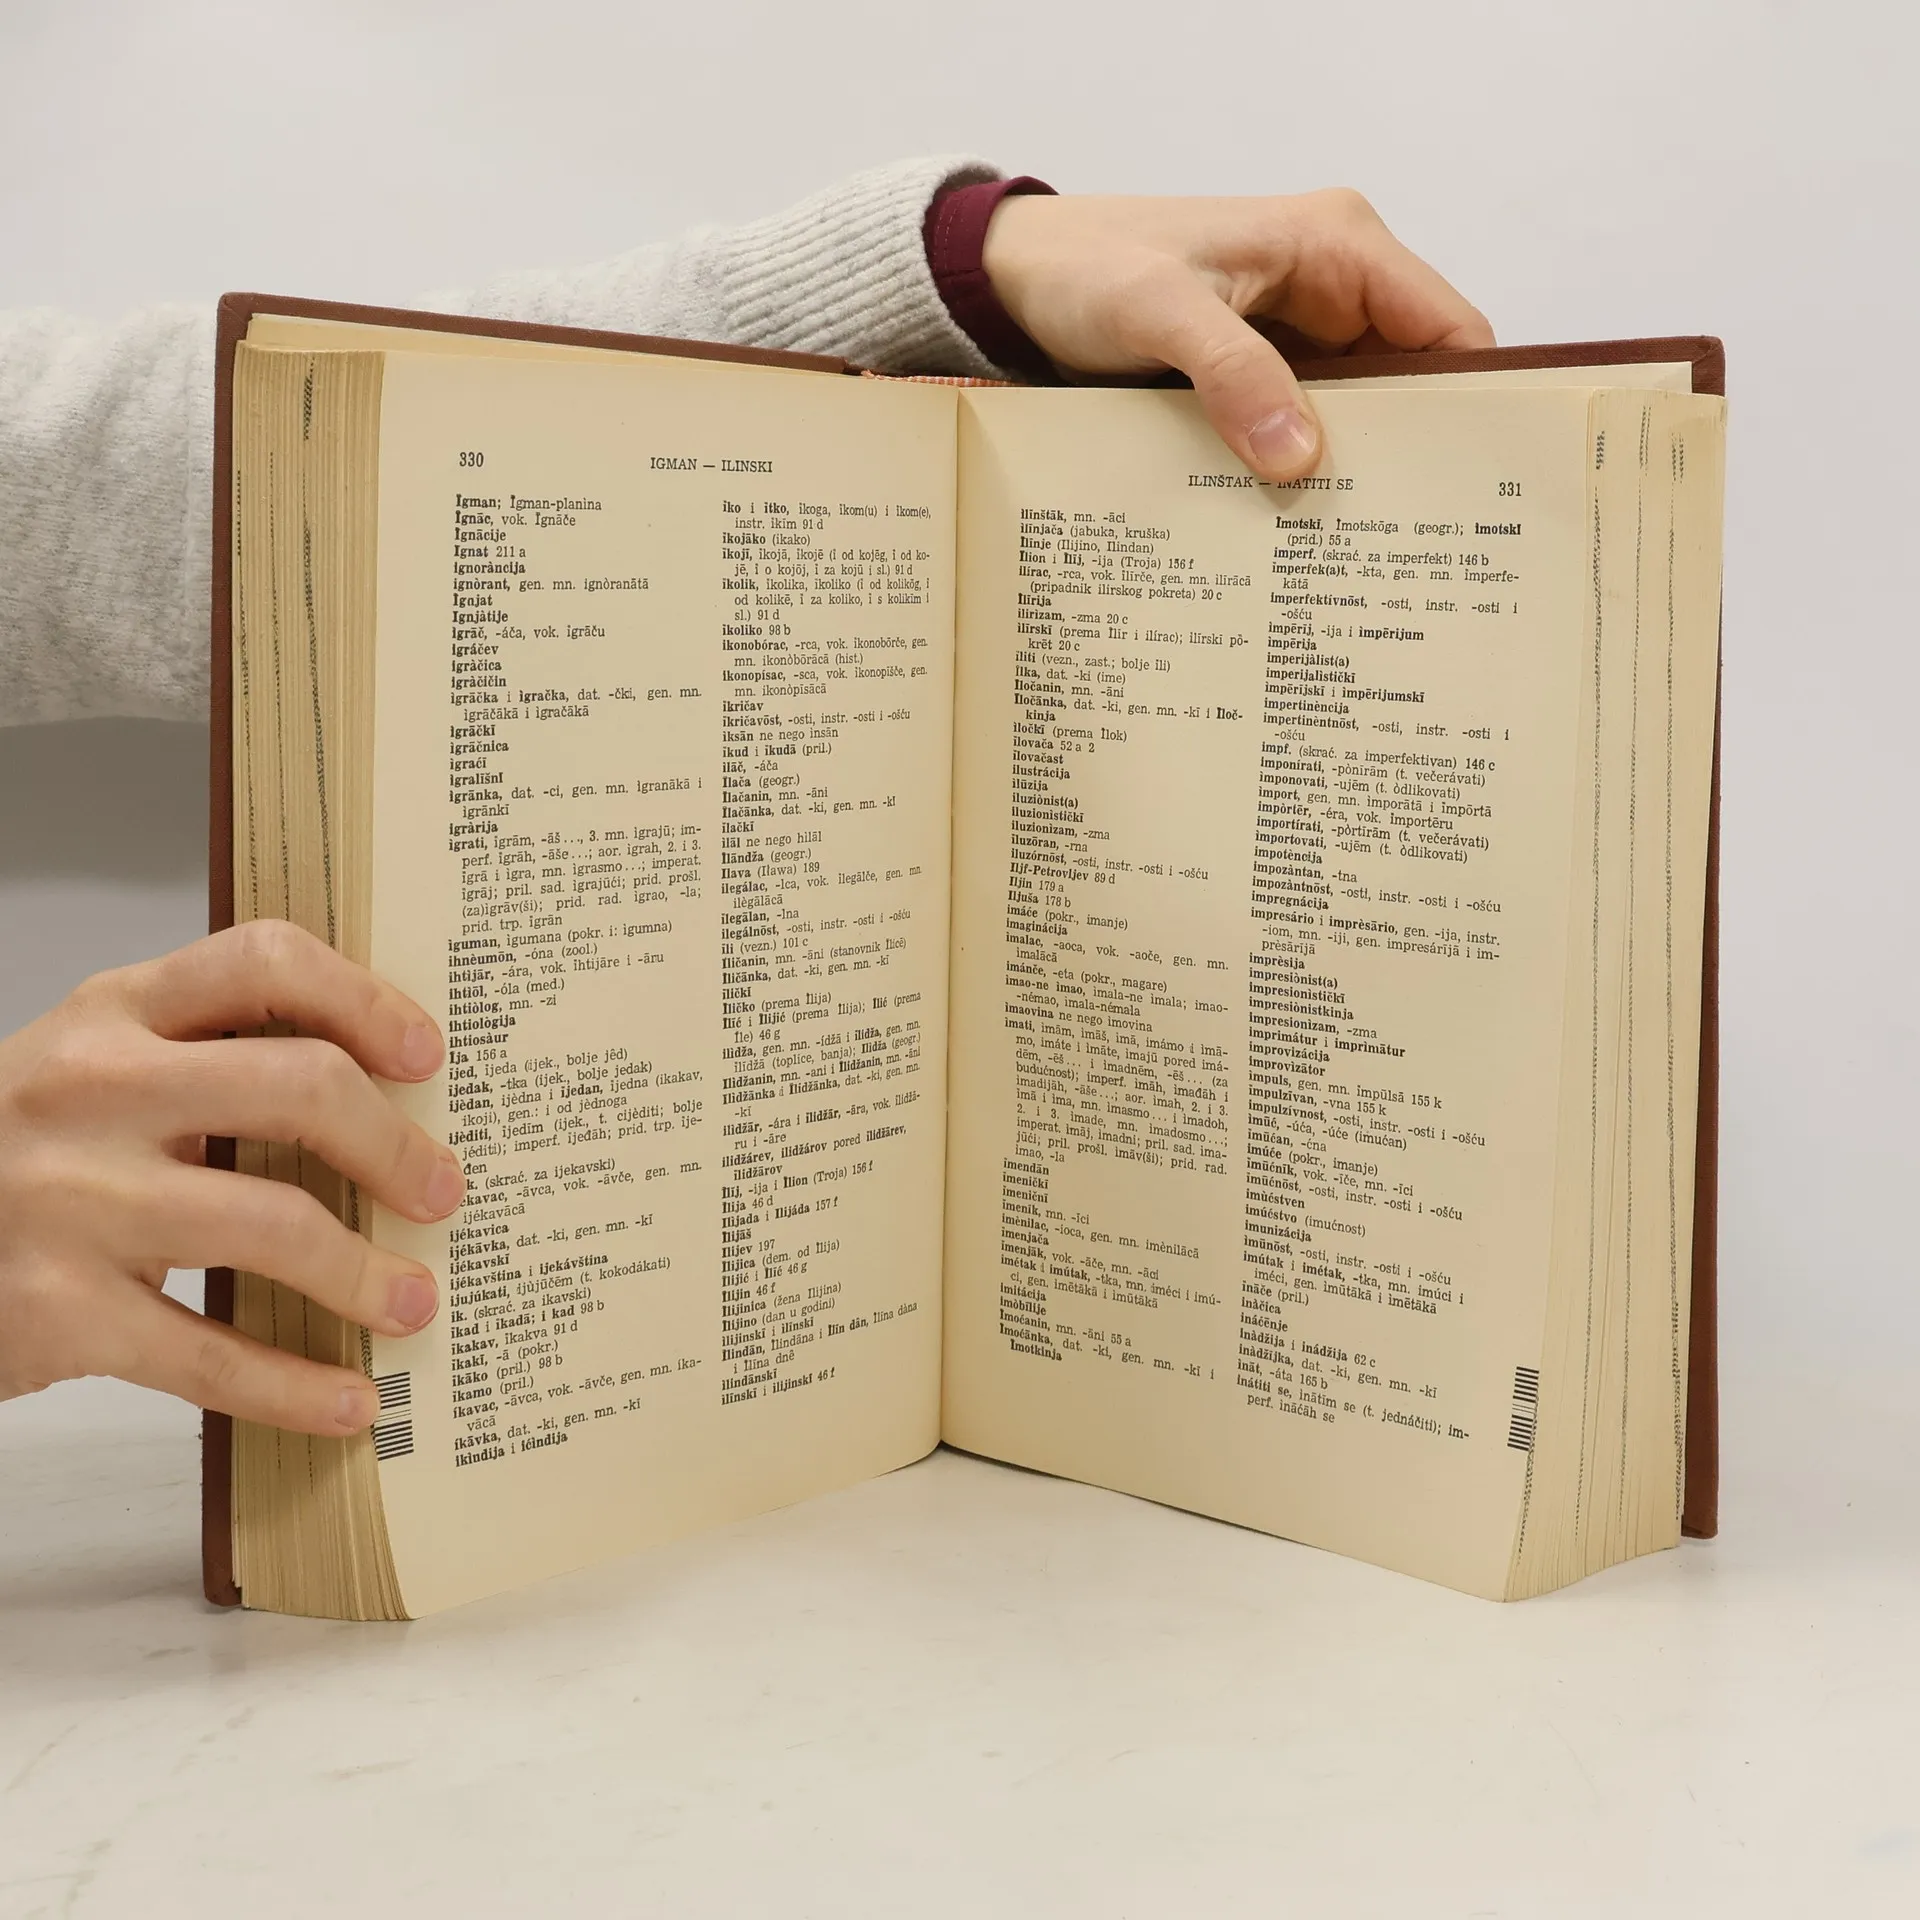 330
IGMAN — ILINSKI
Ȉgman; Ȉgman-planina
Ȉgnāc, vok. Ȉgnāče
Ignácije
Ȉgnat 211 a
ignoràncija
ignòrant, gen. mn. ignòranātā
Ȉgnjat
Ignjàtije
ìgrāč, -áča, vok. ìgrāču
Igráčev
igràčica
igràčičin
ìgrāčka i ȉgračka, dat. -čki, gen. mn.
ìgrāčākā i ȉgračākā
ìgrāčkī
ìgrāčnica
ìgraćī
ìgralīšnī
ìgrānka, dat. -ci, gen. mn. ìgranākā i
ìgrānkī
igràrija
ìgrati, ȉgrām, -āš ..., 3. mn. ìgrajū; im-
perf. ȉgrāh, -āše ...; aor. ìgrah, 2. i 3.
ȉgrā i ȉgra, mn. ìgrasmo ...; imperat.
ìgrāj; pril. sad. ìgrajūći; prid. prošl.
(za)ìgrāv(ši); prid. rad. ìgrao, -la;
prid. trp. ȉgrān
ìguman, ìgumana (pokr. i: ìgumna)
ihnèumōn, -óna (zool.)
ihtìjār, -ára, vok. ȉhtijāre i -āru
ihtìōl, -óla (med.)
ihtìòlog, mn. -zi
ihtiològija
ihtiosàur
Ȉja 156 a
ȉjed, ȉjeda (ijek., bolje jȇd)
ȉjedak, -tka (ijek., bolje jedak)
ìjèdan, ijèdna i ȉjedan, ȉjedna (ikakav,
ikoji), gen.: i od jèdnoga
ijèditi, ȉjedīm (ijek., t. cijèditi; bolje
jéditi); imperf. ȉjeđāh; prid. trp. ȉje-
đen
k. (skrać. za ijekavski)
ekavac, -āvca, vok. -āvče, gen. mn.
ijékavācā
ijékavica
ijékāvka, dat. -ki, gen. mn. -kī
ijékavskī
ijékavština i ijekávština
ijujúkati, ijùjūčēm (t. kokodákati)
ik. (skrać. za ikavski)
ȉkad i ȉkadā; i kad 98 b
ȉkakav, ȉkakva 91 d
ikakī, -ā (pokr.)
ȉkāko (pril.) 98 b
ȉkamo (pril.)
íkavac, -āvca, vok. -āvče, gen. mn. íka-
vācā
íkāvka, dat. -ki, gen. mn. -kī
ikìndija i ićìndija
ȉko i ȉtko, ȉkoga, ȉkom(u) i ȉkom(e),
instr. ȉkim 91 d
ȉkojāko (ikako)
ȉkojī, ȉkojā, ȉkojē (i od kojēg, i od ko-
jē, i o kojōj, i za kojū i sl.) 91 d
ȉkolik, ȉkolika, ȉkoliko (i od kolikōg, i
od kolikē, i za koliko, i s kolikīm i
sl.) 91 d
ȉkoliko 98 b
ikonobórac, -rca, vok. ȉkonobōrče, gen.
mn. ikonòbōrācā (hist.)
ikonopísac, -sca, vok. ȉkonopīšče, gen.
mn. ikonòpīsācā
ȉkričav
ȉkričavōst, -osti, instr. -osti i -ošću
iksān ne nego insān
ȉkud i ȉkudā (pril.)
ìlāč, -áča
Ȉlača (geogr.)
Ȉlačanin, mn. -āni
Ȉlačānka, dat. -ki, gen. mn. -kī
ȉlačkī
ilāl ne nego hilāl
Ilāndža (geogr.)
Ȉlava (Iława) 189
ilegálac, -lca, vok. ȉlegālče, gen. mn.
ilègālācā
ȉlegālan, -lna
ilegálnōst, -osti, instr. -osti i -ošću
ȉli (vezn.) 101 c
Ȉličanin, mn. -āni (stanovnik Ilićē)
Ȉličānka, dat. -ki, gen. mn. -kī
ȉličkī
Ȉličko (prema Ilija)
Ȉlić i Ȉlijić (prema Ilija); Ilić (prema
Íle) 46 g
ȉlidža, gen. mn. -ídžā i ȉlidža, gen. mn.
ȉlīdžā (toplice, banja); Ȉlidža (geogr.)
Ilidžanin, mn. -ani i Ilidžanin, mn. -āni
Ilidžānka i Ilidžānka, dat. -ki, gen. mn.
-kī
ilìdžār, -ára i ilidžār, -āra, vok. ilidžā-
ru i -āre
ilidžárev, ilidžárov pored ilidžārev,
ilidžārov
Ȉlīj, -ija i Ȉlion (Troja) 156 f
Ìlija 46 d
Ilijada i Ilijáda 157 f
Ilijāš
Ilijev 197
Ilijica (dem. od Ilija)
Ilijić i Ilīć 46 g
Ilijin 46 f
Ilijinica (žena Ilijina)
Ilijino (dan u godini)
ilijinskī i ilinskī
Ilindān, Ilindāna i Ilin dān, Ilina dāna
i Ilina dnē
ilindānskī
ilinskī i ilijinskī 46 f
ILINŠTAK — INATITI SE
331
ìlīnštāk, mn. -āci
ìlīnjača (jabuka, kruška)
Ȉlīnje (Ilijino, Ilindan)
Ȉlion i Ȉlīj, -ija (Troja) 156 f
ilírac, -rca, vok. ȉlīrče, gen. mn. ilīrācā
(pripadnik ilirskog pokreta) 20 c
Ilīrija
ilirìzam, -zma 20 c
ilīrskī (prema Ilir i ilírac); ilīrskī pò-
krēt 20 c
ȉliti (vezn., zast.; bolje ȉli)
Ȉlka, dat. -ki (ime)
Ȉločanin, mn. -āni
Ȉločānka, dat. -ki, gen. mn. -kī i Ȉloč-
kinja
ȉločkī (prema Ȉlok)
ȉlovača 52 a 2
ȉlovačast
ilustrácija
ilúzija
iluziònist(a)
iluzionìstičkī
iluzionìzam, -zma
iluzōran, -rna
iluzórnōst, -osti, instr. -osti i -ošću
Iljf-Petrovljev 89 d
Iljin 179 a
Iljuša 178 b
imáće (pokr., imanje)
imaginácija
imalac, -aoca, vok. -aoče, gen. mn.
imalācā
imánče, -eta (pokr., magare)
imao-ne imao, imala-ne imala; imao-
-némao, imala-némala
imaovina ne nego ìmovina
imati, imām, imāš, imā, imámo i imā-
mo, imáte i imāte, imajū pored imá-
dēm, -ēš ... i imadnēm, -ēš ... (za
budućnost); imperf. imāh, imađāh i
imadijāh, -āše ...; aor. imah, 2. i 3.
imā i ima, mn. imasmo ... i imadoh,
2. i 3. imade, mn. imadosmo ...;
imperat. imāj, imadni; pril. sad. ima-
jūći; pril. prošl. imāv(ši); prid. rad.
imao, -la
imendān
imeničkī
imeničnī
imenīk, mn. -īci
imènilac, -ioca, gen. mn. imènilācā
imenjača
imenjāk, vok. -āče, mn. -āci
imétak i imútak, -tka, mn. iméci i imú-
ci, gen. imētākā i imūtākā
imitácija
imòbīlije
Imoćanin, mn. -āni 55 a
Imoćānka, dat. -ki, gen. mn. -kī i
Imotkinja
Ȉmotskī, Ȉmotskōga (geogr.); ȉmotskī
(prid.) 55 a
imperf. (skrać. za imperfekt) 146 b
ȉmperfek(a)t, -kta, gen. mn. ȉmperfe-
kātā
imperfektívnōst, -osti, instr. -osti i
-ošću
impērīj, -ija i impērijum
impērija
imperijàlist(a)
imperijalìstičkī
impērījskī i impērijumskī
impertinèncija
impertinèntnōst, -osti, instr. -osti i
-ošću
impf. (skrać. za imperfektivan) 146 c
impon­írati, -pònīrām (t. večerávati)
ìmponovati, -ujēm (t. òdlikovati)
ìmport, gen. mn. ìmporātā i ìmpōrtā
impòrtēr, -éra, vok. ìmportēru
importírati, -pòrtīrām (t. večerávati)
ìmportovati, -ujēm (t. òdlikovati)
impotèncija
impozàntan, -tna
impozàntnōst, -osti, instr. -osti i -ošću
impregnácija
impresário i imprèsārio, gen. -ija, instr.
-iom, mn. -iji, gen. impresárījā i im-
prèsārījā
imprèsija
impresiònist(a)
impresionìstičkī
impresiònistkinja
impresionìzam, -zma
imprimátur i imprìmātur
improvizácija
improvìzātor
impuls, gen. mn. ìmpūlsā 155 k
ìmpulzīvan, -vna 155 k
impulzívnost, -osti, instr. -osti i -ošću
ìmūć, -úća, -úće (imućan)
imūćan, -ćna
imúće (pokr., imanje)
imūćnīk, vok. -īče, mn. -īci
imūćnōst, -osti, instr. -osti i -ošću
imùćstven
imúćstvo (imućnost)
imunizácija
imūnōst, -osti, instr. -osti i -ošću
imútak i imétak, -tka, mn. imúci i
iméci, gen. imūtākā i imētākā
ináče (pril.)
ináčica
ináčēnje
Inàdžija i inádžija 62 c
inàdžījka, dat. -ki, gen. mn. -kī
ìnāt, -áta 165 b
inátiti se, ìnātīm se (t. jednáčiti); im-
perf. ìnāćāh se